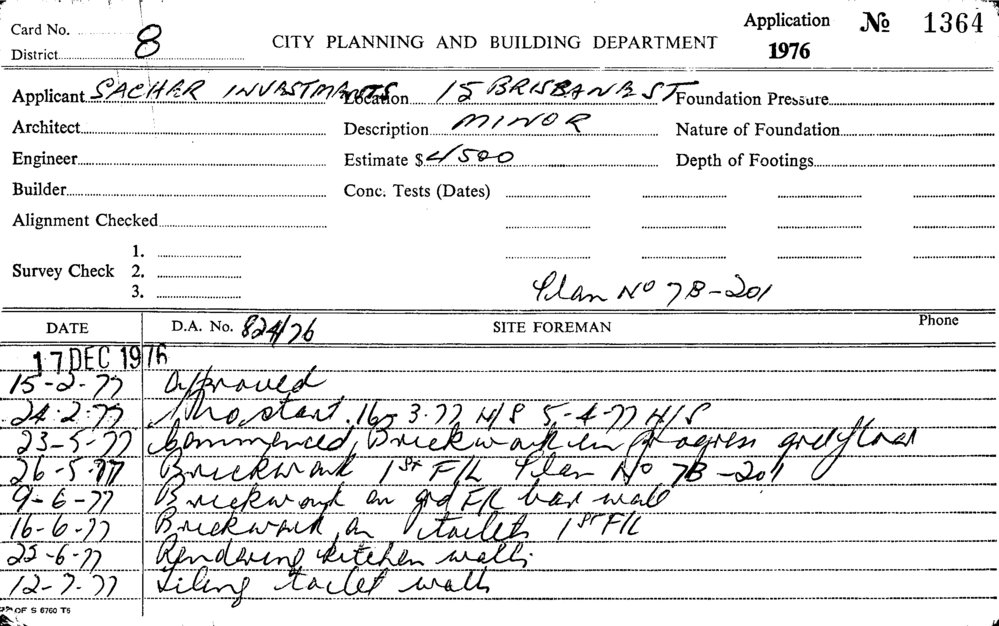 Card No. Application No 1364
District 8 CITY PLANNING AND BUILDING DEPARTMENT 1976
Applicant SACHER INVESTMANTS Location 15 BRISBANE ST Foundation Pressure
Architect Description MINOR Nature of Foundation
Engineer Estimate $ 4500 Depth of Footings
Builder Conc. Tests (Dates)
Alignment Checked
1.
Survey Check 2.
3. Plan No 7B-201
DATE D.A. No. 824/76 SITE FOREMAN Phone
17 DEC 1976
15-2-77 Approved
24-2-77 No start. 16-3-77 N/S 5-4-77 N/S
23-5-77 Commenced, Brickwork in Progress grd floor
26-5-77 Brickwork 1st F/L Plan No 7B-201
9-6-77 Brickwork on grd FR bar wall
16-6-77 Brickwork on toilets 1st F/L
22-6-77 Rendering kitchen walls
12-7-77 Tiling toilet walls
OF S 6760 T5